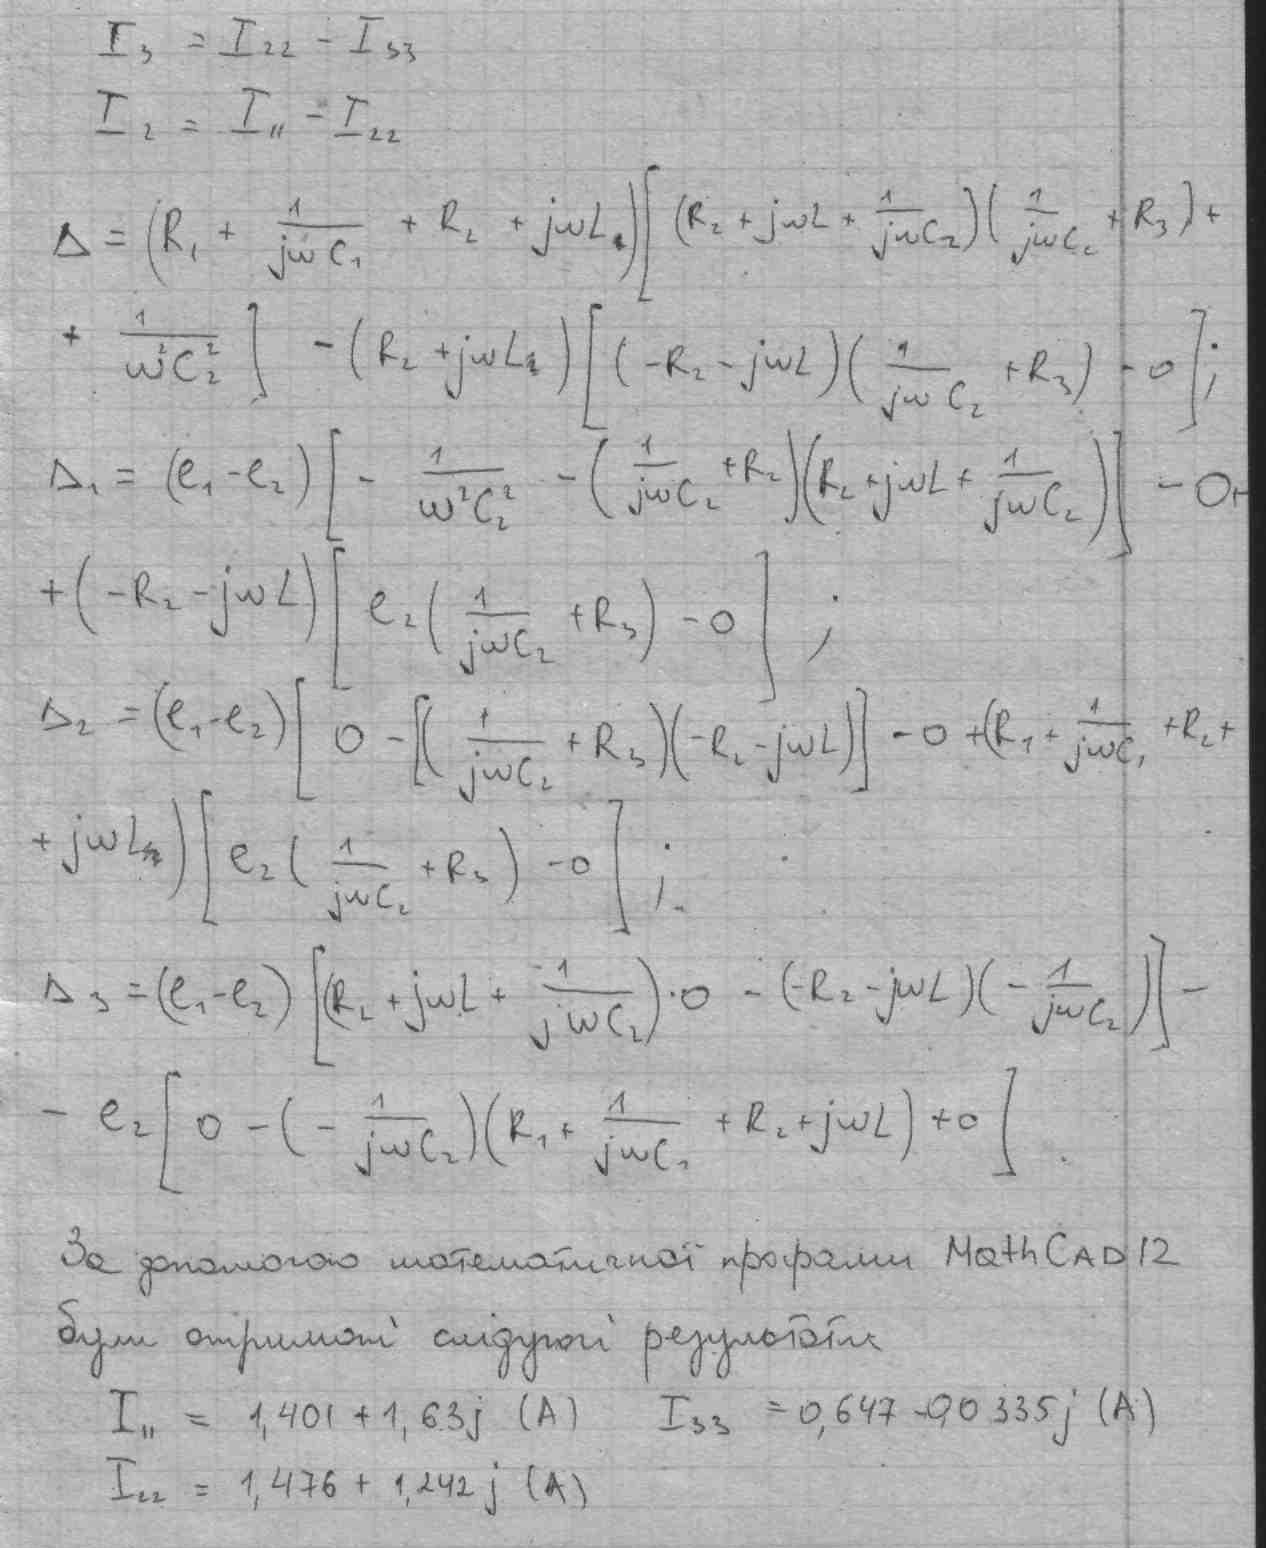 I₃ = I₂₂ - I₃₃
I₂ = I₁₁ - I₂₂
Δ = (R₁ + 1/(jωC₁) + R₂ + jωL)[(R₂ + jωL + 1/(jωC₂))(1/(jωC₂) + R₃) +
+ 1/(ω²C₂²)] - (R₂ + jωL)[(-R₂ - jωL)(1/(jωC₂) + R₃) - 0];
Δ₁ = (e₁ - e₂)[- 1/(ω²C₂²) - (1/(jωC₂) + R₂)(R₂ + jωL + 1/(jωC₂))] - 0 +
+ (-R₂ - jωL)[e₂(1/(jωC₂) + R₃) - 0];
Δ₂ = (e₁ - e₂)[0 - [(1/(jωC₂) + R₃)(-R₂ - jωL)] - 0 + (R₁ + 1/(jωC₁) + R₂ +
+ jωL)[e₂(1/(jωC₂) + R₃) - 0];
Δ₃ = (e₁ - e₂)[(R₂ + jωL + 1/(jωC₂))·0 - (-R₂ - jωL)(- 1/(jωC₂))] -
- e₂[0 - (- 1/(jωC₂))(R₁ + 1/(jωC₁) + R₂ + jωL) + 0].
За допомогою математичної програми MathCAD 12
були отримані слідуючі результати
I₁₁ = 1,401 + 1,63j (A) I₃₃ = 0,647 - 0,0335j (A)
I₂₂ = 1,476 + 1,242j (A)